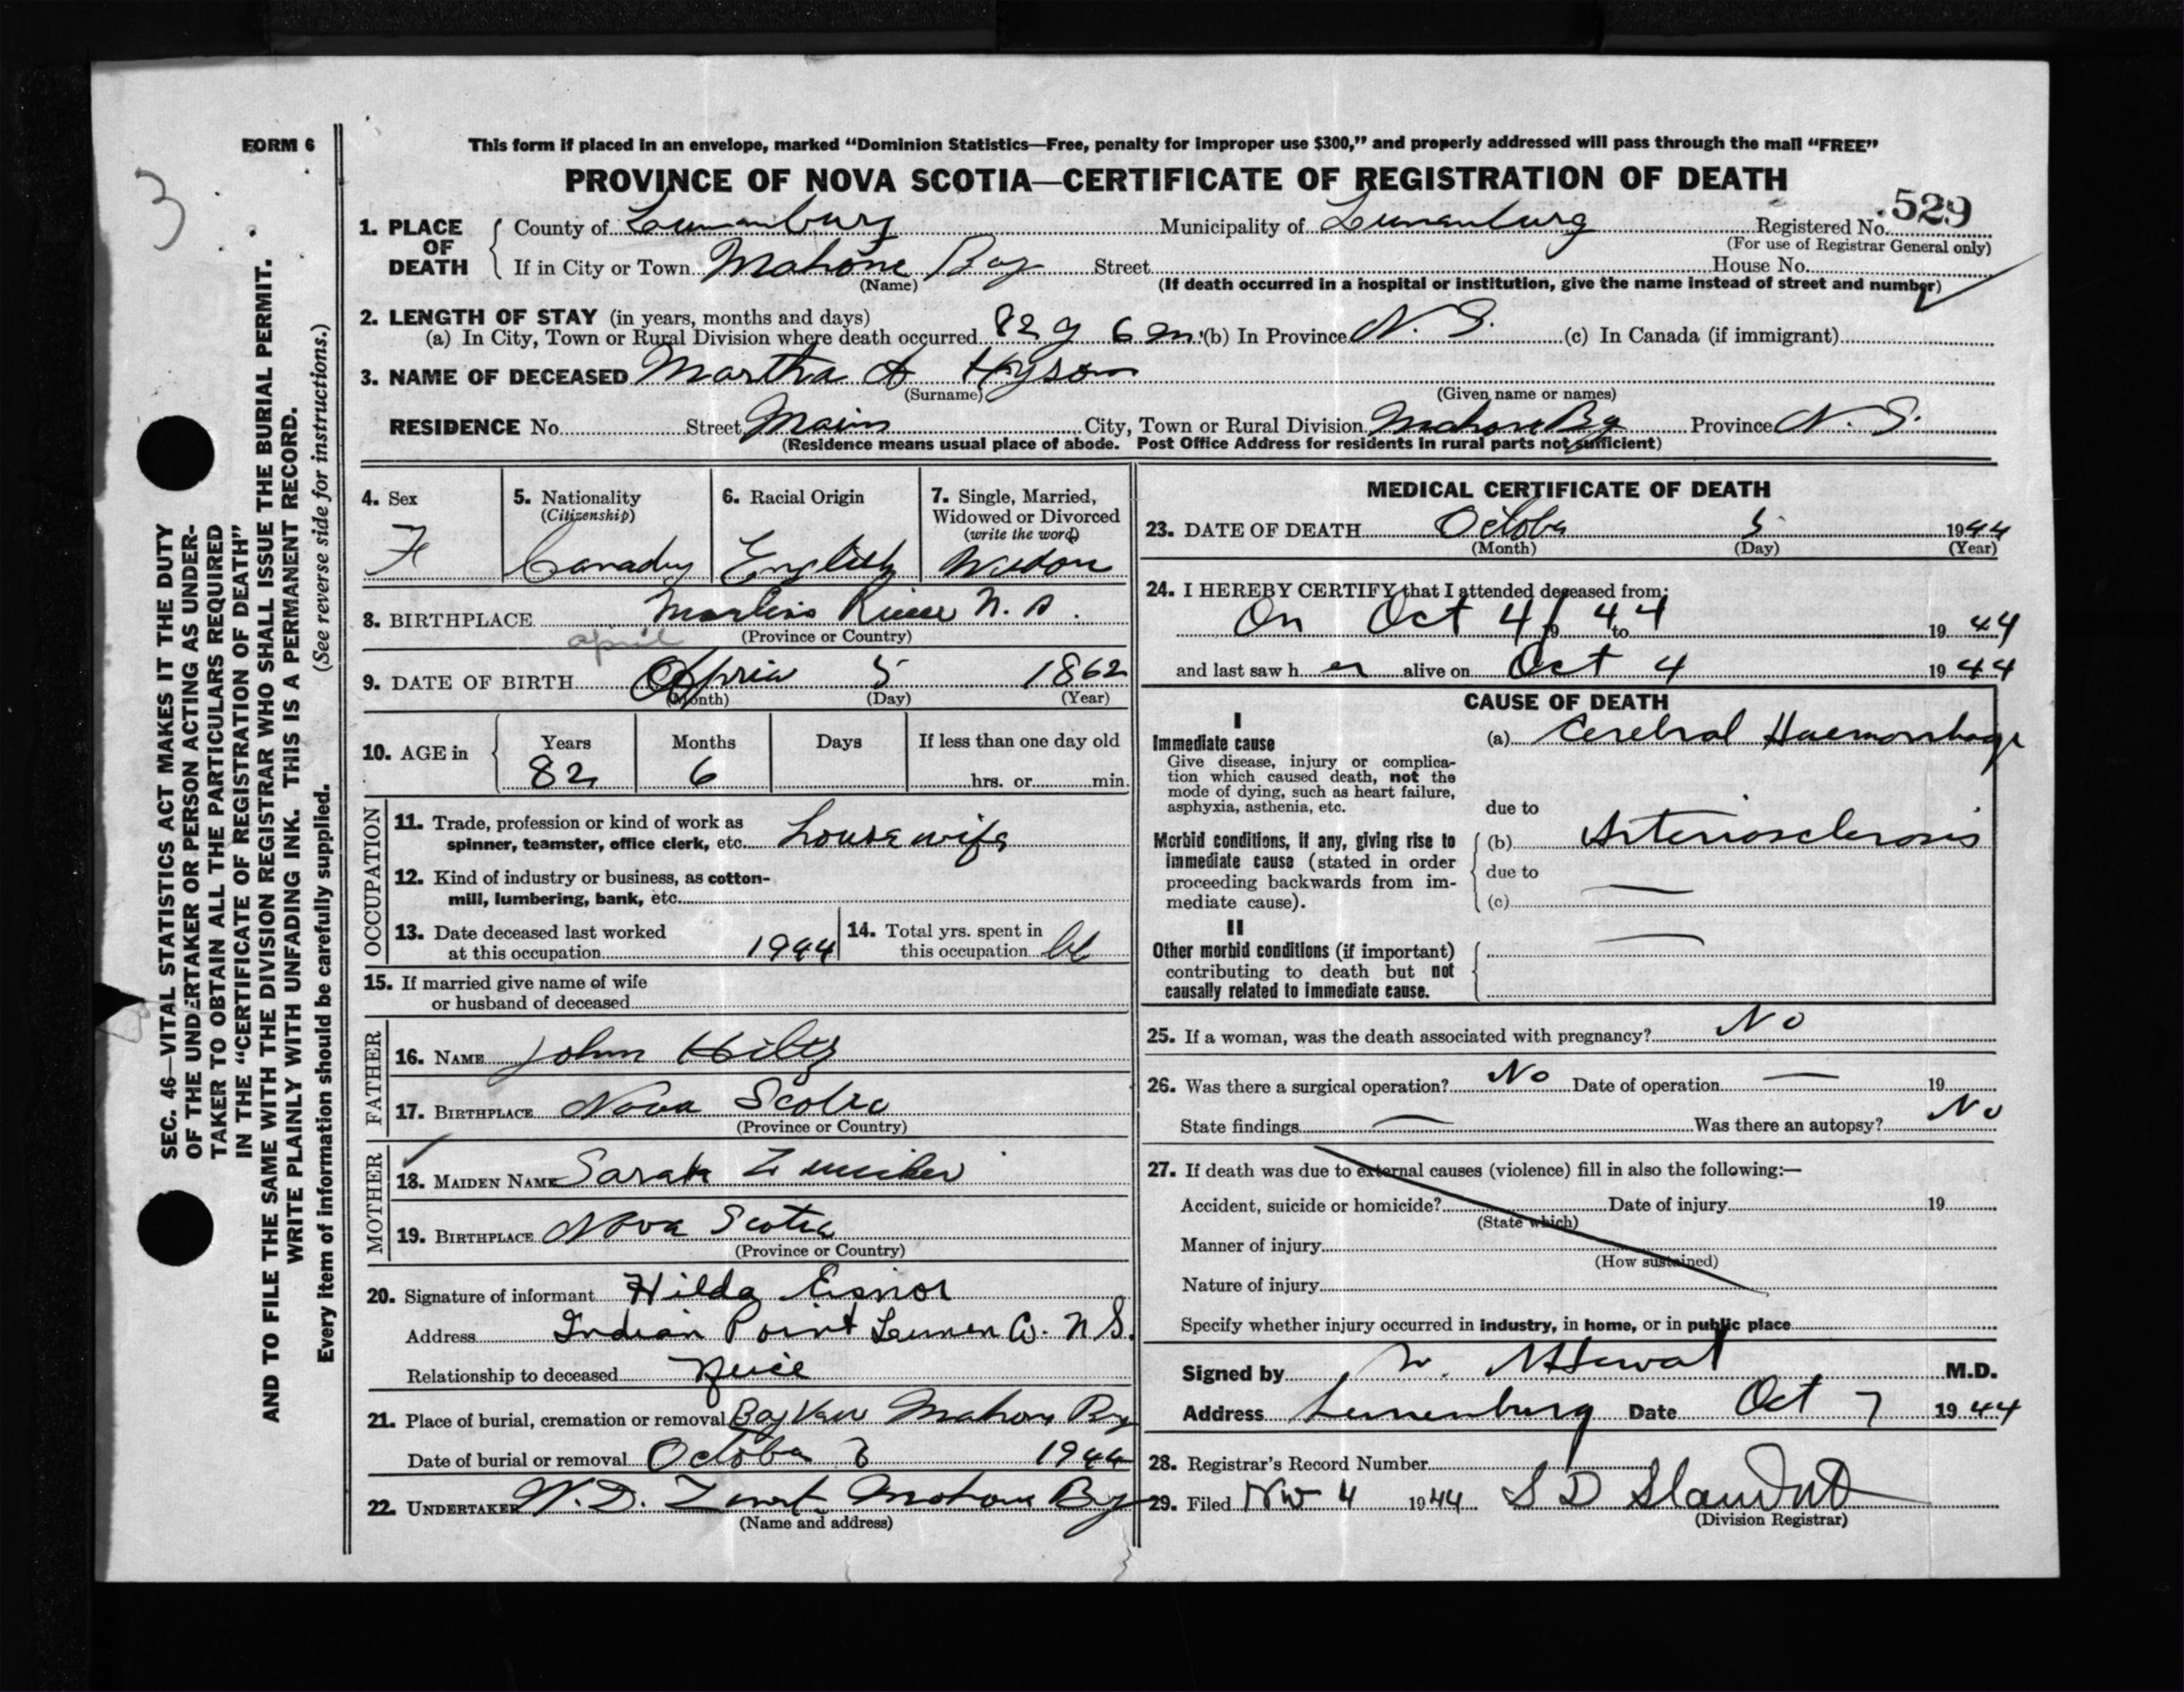 FORM 6
3
This form if placed in an envelope, marked “Dominion Statistics—Free, penalty for improper use $300,” and properly addressed will pass through the mail “FREE”
PROVINCE OF NOVA SCOTIA—CERTIFICATE OF REGISTRATION OF DEATH
529
1. PLACE OF DEATH County of Lunenburg Municipality of Lunenburg Registered No.
(For use of Registrar General only)
If in City or Town Mahone Bay Street House No.
(Name) (If death occurred in a hospital or institution, give the name instead of street and number)
2. LENGTH OF STAY (in years, months and days)
(a) In City, Town or Rural Division where death occurred 82 y 6 m (b) In Province N. S. (c) In Canada (if immigrant)
3. NAME OF DECEASED Martha A Hyson
(Surname) (Given name or names)
RESIDENCE No. Street Main City, Town or Rural Division Mahone By Province N. S.
(Residence means usual place of abode. Post Office Address for residents in rural parts not sufficient)
4. Sex
F
5. Nationality
(Citizenship)
6. Racial Origin
English
7. Single, Married,
Widowed or Divorced
(write the word)
8. BIRTHPLACE Martins River N. S.
(Province or Country)
april
9. DATE OF BIRTH April 5 1862
(Month) (Day) (Year)
10. AGE in Years Months Days If less than one day old
82 6 hrs. or min.
OCCUPATION
11. Trade, profession or kind of work as
spinner, teamster, office clerk, etc. housewife
12. Kind of industry or business, as cotton-
mill, lumbering, bank, etc.
13. Date deceased last worked
at this occupation 1944
14. Total yrs. spent in
this occupation
15. If married give name of wife
or husband of deceased
FATHER
16. NAME John Hiltz
17. BIRTHPLACE Nova Scotia
(Province or Country)
MOTHER
18. MAIDEN NAME Sarah
19. BIRTHPLACE Nova Scotia
(Province or Country)
20. Signature of informant Hilda Eisnor
Address Indian Point Lunen Co. N S.
Relationship to deceased Neice
21. Place of burial, cremation or removal Bay View Mahone By
Date of burial or removal October 8 1944
22. UNDERTAKER W. D. Mahone By
(Name and address)
MEDICAL CERTIFICATE OF DEATH
23. DATE OF DEATH October 5 1944
(Month) (Day) (Year)
24. I HEREBY CERTIFY that I attended deceased from:
On Oct 4/ 19 44 to 19 44
and last saw h er alive on Oct 4 19 44
CAUSE OF DEATH
I
Immediate cause
Give disease, injury or complica-
tion which caused death, not the
mode of dying, such as heart failure,
asphyxia, asthenia, etc.
(a) Cerebral Haemorrhage
due to
Morbid conditions, if any, giving rise to
immediate cause (stated in order
proceeding backwards from im-
mediate cause).
(b) Arteriosclerosis
due to
(c) —
II
Other morbid conditions (if important)
contributing to death but not
causally related to immediate cause.
—
25. If a woman, was the death associated with pregnancy? No
26. Was there a surgical operation? No Date of operation — 19
State findings — Was there an autopsy? No
27. If death was due to external causes (violence) fill in also the following:—
Accident, suicide or homicide? Date of injury 19
(State which)
Manner of injury
(How sustained)
Nature of injury
Specify whether injury occurred in industry, in home, or in public place
Signed by M.D.
Address Lunenburg Date Oct 7 19 44
28. Registrar's Record Number
29. Filed Nov 4 1944 S D
(Division Registrar)
SEC. 46—VITAL STATISTICS ACT MAKES IT THE DUTY
OF THE UNDERTAKER OR PERSON ACTING AS UNDER-
TAKER TO OBTAIN ALL THE PARTICULARS REQUIRED
IN THE “CERTIFICATE OF REGISTRATION OF DEATH”
AND TO FILE THE SAME WITH THE DIVISION REGISTRAR WHO SHALL ISSUE THE BURIAL PERMIT.
WRITE PLAINLY WITH UNFADING INK. THIS IS A PERMANENT RECORD.
Every item of information should be carefully supplied. (See reverse side for instructions.)